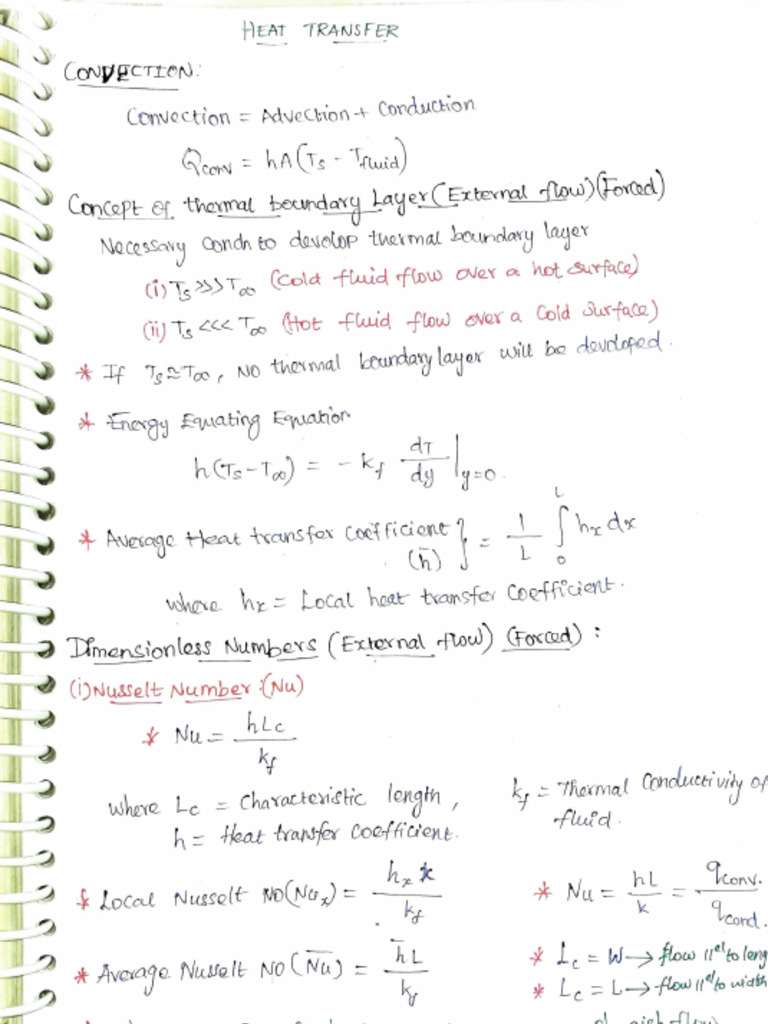 HEAT TRANSFER
CONVECTION:
Convection = Advection + Conduction
Qconv = hA(Ts - Tfluid)
Concept of thermal boundary Layer (External flow) (Forced)
Necessary Condn to devolop thermal boundary layer
(i) Ts >>> T∞ (Cold fluid flow over a hot surface)
(ii) Ts <<< T∞ (Hot fluid flow over a Cold Surface)
* If Ts ≃ T∞, NO thermal boundary layer will be devloped.
* Energy Equating Equation
h(Ts - T∞) = - kf dT/dy |y=0.
* Average Heat transfer Coefficient (h̄) } = 1/L ∫₀ᴸ hx dx
where hx = Local heat transfer Coefficient.
Dimensionless Numbers (External flow) (Forced) :
(i) Nusselt Number :(Nu)
* Nu = hLc/kf
where Lc = Characteristic length, kf = Thermal Conductivity of
h = Heat transfer Coefficient. fluid.
* Local Nusselt NO (Nux) = hx x/kf * Nu = hL/k = qconv./qcond.
* Average Nusselt NO (N̄u) = h̄L/kf * Lc = W → flow ||el to leng
* Lc = L → flow ||el to width